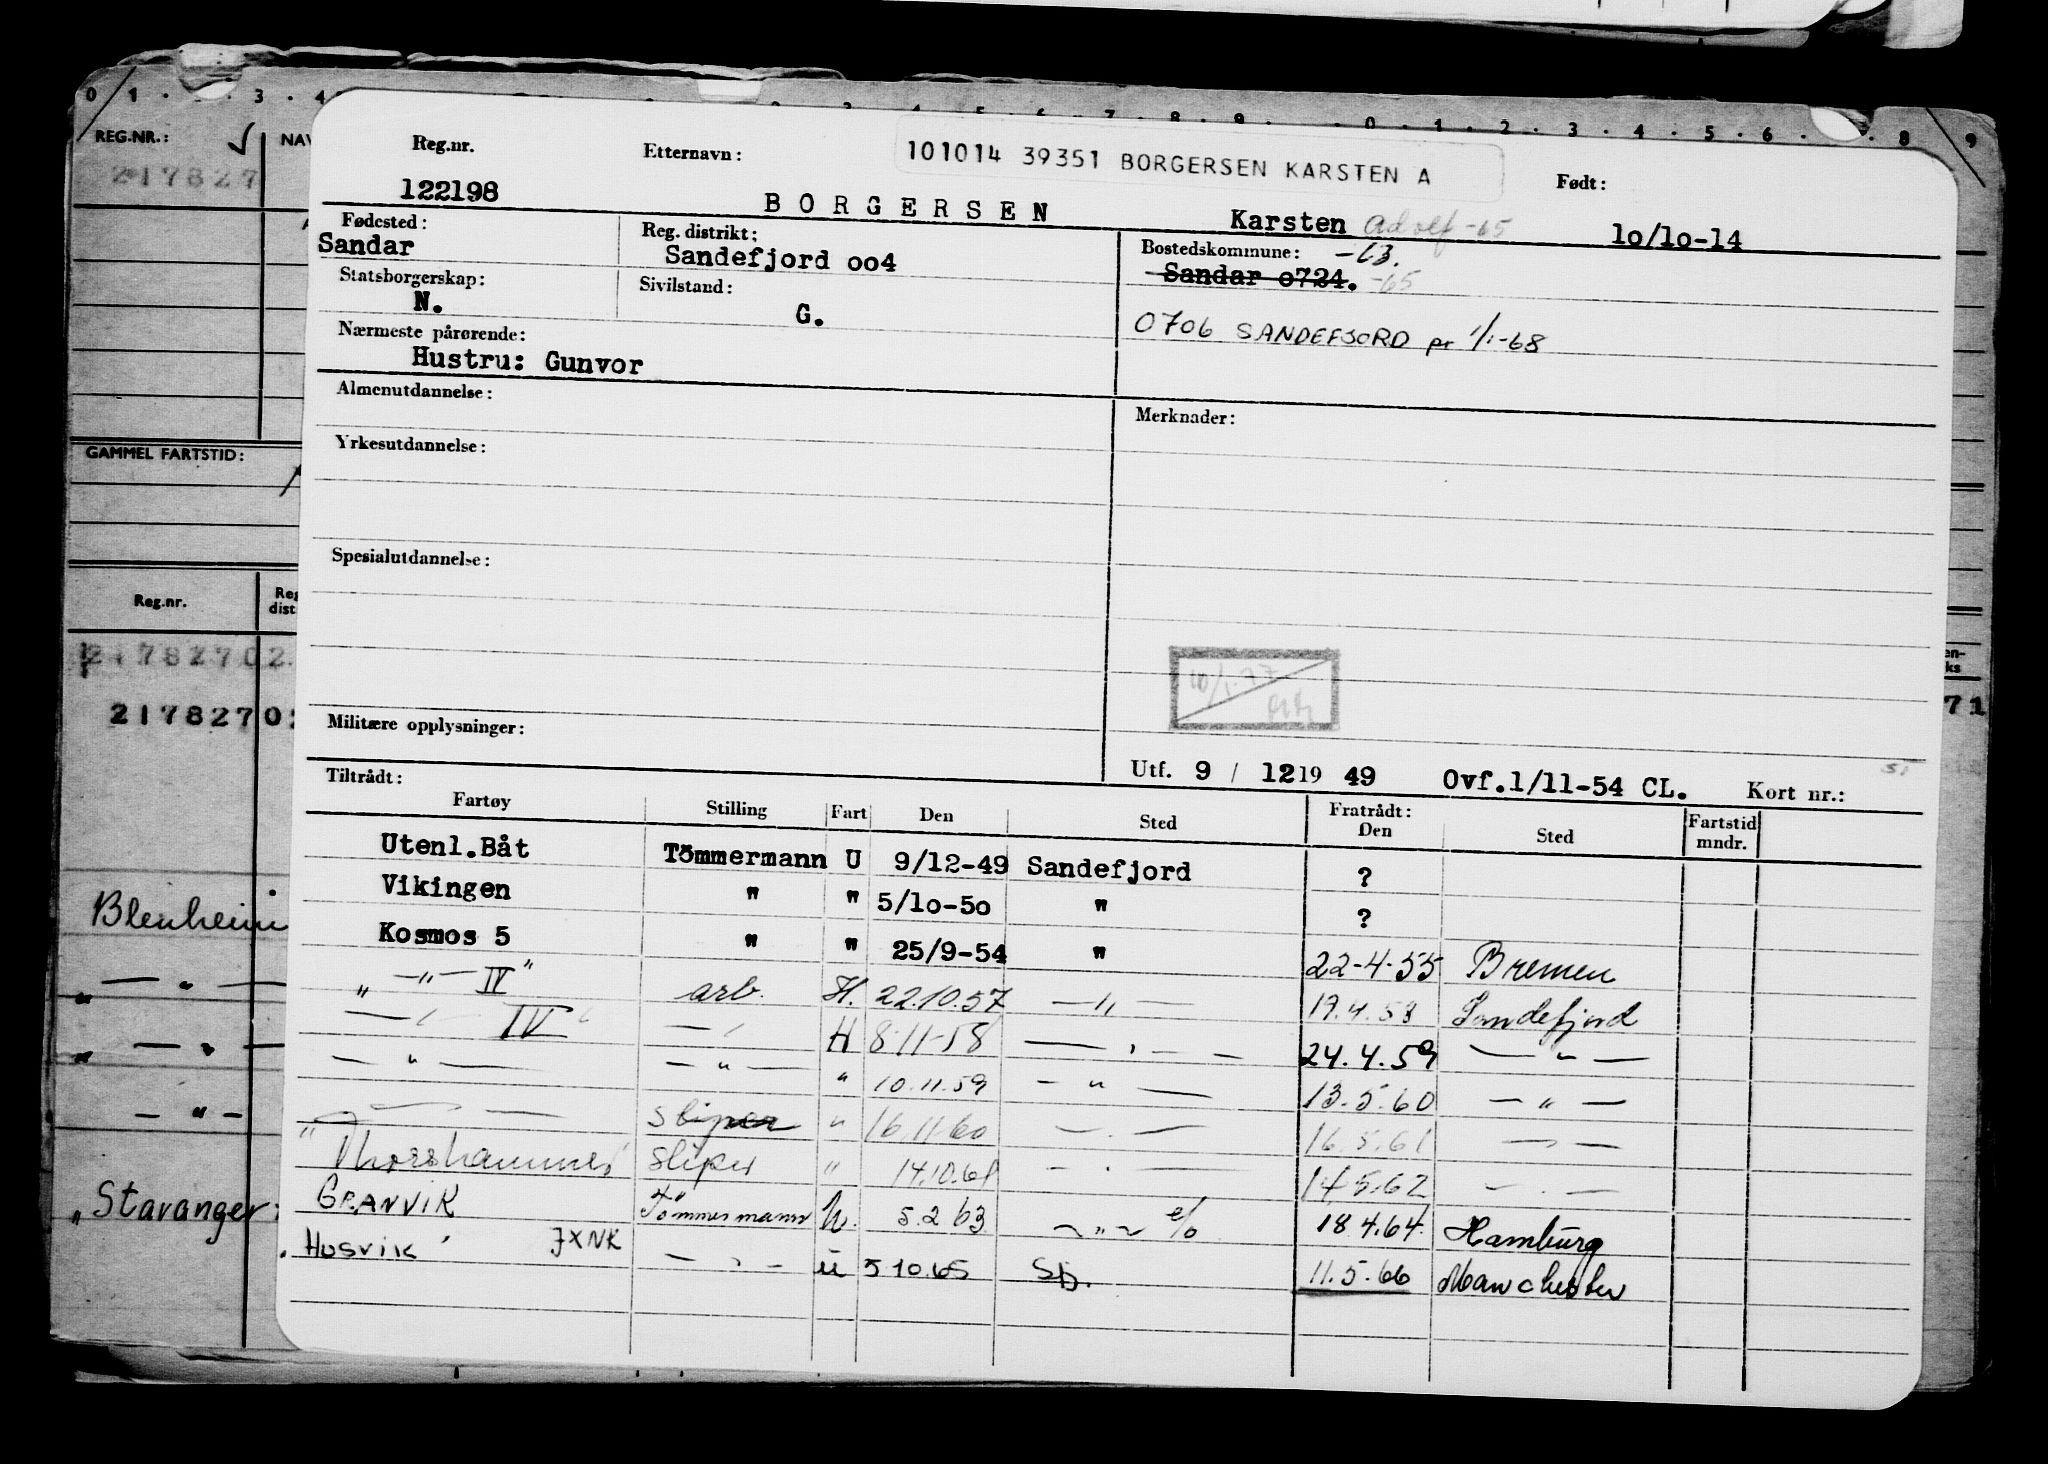 0 1 . . . 3 . 4
REG.NR.: NAV
217827
GAMMEL FARTSTID:
Reg.nr. Reg dist
2178270 2
217827 0
Blenheim
— " —
— " —
— " —
"Stavanger
Reg.nr. Etternavn: 101014 39351 BORGERSEN KARSTEN A Født:
122198 BORGERSEN Karsten Adolf -65 10/10-14
Fødested: Reg. distrikt: Bostedskommune: -63.
Sandar Sandefjord 004 Sandar 0724. -65
Statsborgerskap: Sivilstand:
N. G.
Nærmeste pårørende: 0706 SANDEFJORD pr 1/1-68
Hustru: Gunvor
Almenutdannelse: Merknader:
Yrkesutdannelse:
Spesialutdannelse:
10/1.77
Militære opplysninger:
Utf. 9 / 12 19 49 Ovf.1/11-54 CL. Kort nr.:
Tiltrådt: Fratrådt:
Fartøy Stilling Fart Den Sted Den Sted Fartstid mndr.
Utenl.Båt Tömmermann U 9/12-49 Sandefjord ?
Vikingen " " 5/10-50 " ?
Kosmos 5 " " 25/9-54 " 22-4-55 Bremen
" — " — IV " arb. H. 22.10.57 — " — 19.4.58 Sandefjord
— " — IV — " — H 8-11-58 — " — 24.4.59 — " —
— " — — " — " 10.11.59 — " — 13.5.60 — " —
— " — Sliper " 16.11.60 — " — 16.5.61 — " —
"Thorshammer Sliper " 14.10.61 — " — 14.5.62 — " —
GRANVIK Tömmermann U. 5.2 63 — " — e/o 18.4.64 Hamburg
HUSVIK JXNK — " — U 5 10.65 Sb. 11.5.66 Manchester
71